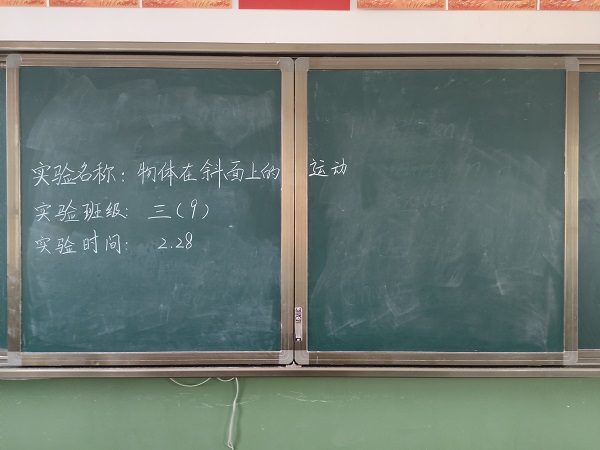 实验名称：物体在斜面上的运动
实验班级：三(9)
实验时间：2.28